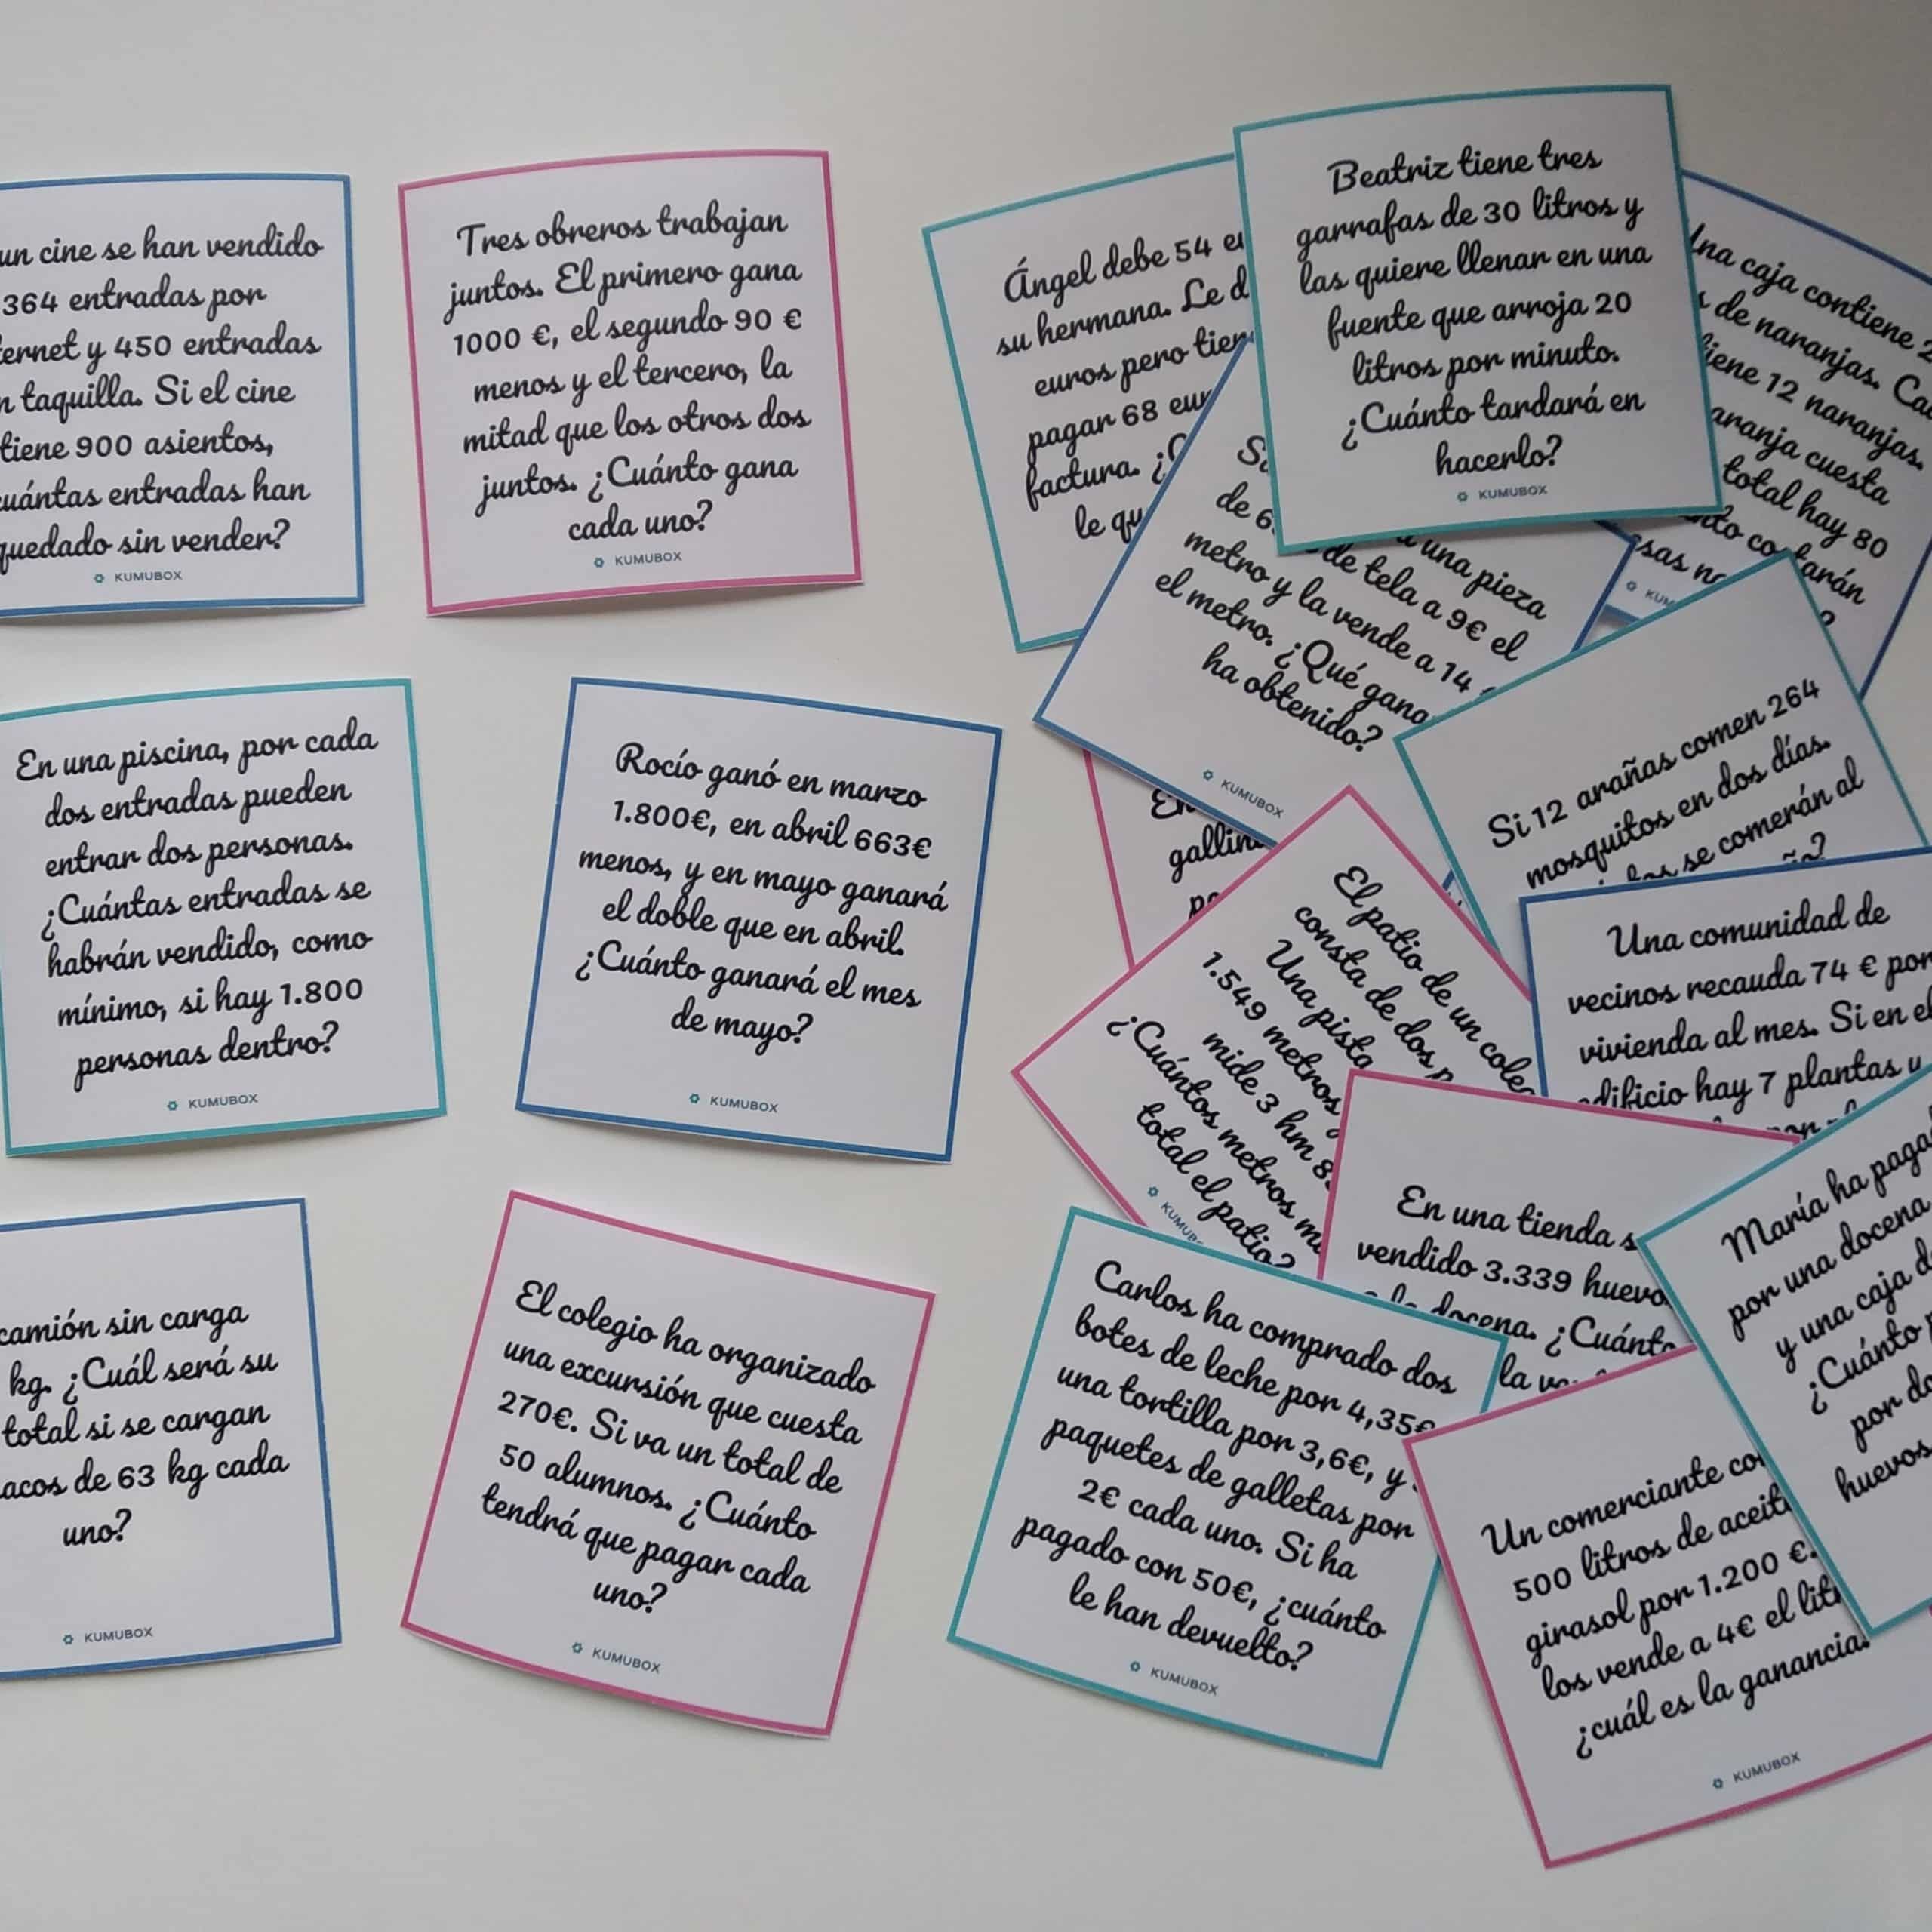 un cine se han vendido
364 entradas por
ernet y 450 entradas
n taquilla. Si el cine
tiene 900 asientos,
cuántas entradas han
quedado sin vender?
KUMUBOX
Tres obreros trabajan
juntos. El primero gana
1000 €, el segundo 90 €
menos y el tercero, la
mitad que los otros dos
juntos. ¿Cuánto gana
cada uno?
KUMUBOX
En una piscina, por cada
dos entradas pueden
entrar dos personas.
¿Cuántas entradas se
habrán vendido, como
mínimo, si hay 1.800
personas dentro?
KUMUBOX
Rocío ganó en marzo
1.800€, en abril 663€
menos, y en mayo ganará
el doble que en abril.
¿Cuánto ganará el mes
de mayo?
KUMUBOX
camión sin carga
kg. ¿Cuál será su
total si se cargan
acos de 63 kg cada
uno?
KUMUBOX
El colegio ha organizado
una excursión que cuesta
270€. Si va un total de
50 alumnos. ¿Cuánto
tendrá que pagar cada
uno?
KUMUBOX
Ángel debe 54 e
su hermana. Le d
euros pero tien
pagar 68 eur
factura. ¿C
le qu
Beatriz tiene tres
garrafas de 30 litros y
las quiere llenar en una
fuente que arroja 20
litros por minuto.
¿Cuánto tardará en
hacerlo?
KUMUBOX
Una caja contiene 2
de naranjas. Ca
iene 12 naranjas.
aranja cuesta
total hay 80
nto co arán
sas na ?
KUM
una pieza
de 6 de tela a 9€ el
metro y la vende a 14
el metro. ¿Qué gana
ha obtenido?
KUMUBOX
Si 12 arañas comen 264
mosquitos en dos días.
se comerán al
En
gallin
El patio de un coleg
consta de dos p
Una pista
1.549 metros y
mide 3 hm 8
¿Cuántos metros m
total el patio?
KUMUB
Una comunidad de
vecinos recauda 74 € por
vivienda al mes. Si en el
edificio hay 7 plantas y
En una tienda s
vendido 3.339 huevo
docena. ¿Cuánto
la v
María ha paga
por una docena
y una caja d
¿Cuánto p
por do
huevos
Carlos ha comprado dos
botes de leche por 4,35€
una tortilla por 3,6€, y
paquetes de galletas por
2€ cada uno. Si ha
pagado con 50€, ¿cuánto
le han devuelto?
KUMUBOX
Un comerciante co
500 litros de aceit
girasol por 1.200 €.
los vende a 4€ el lit
¿cuál es la ganancia
KUMUBOX